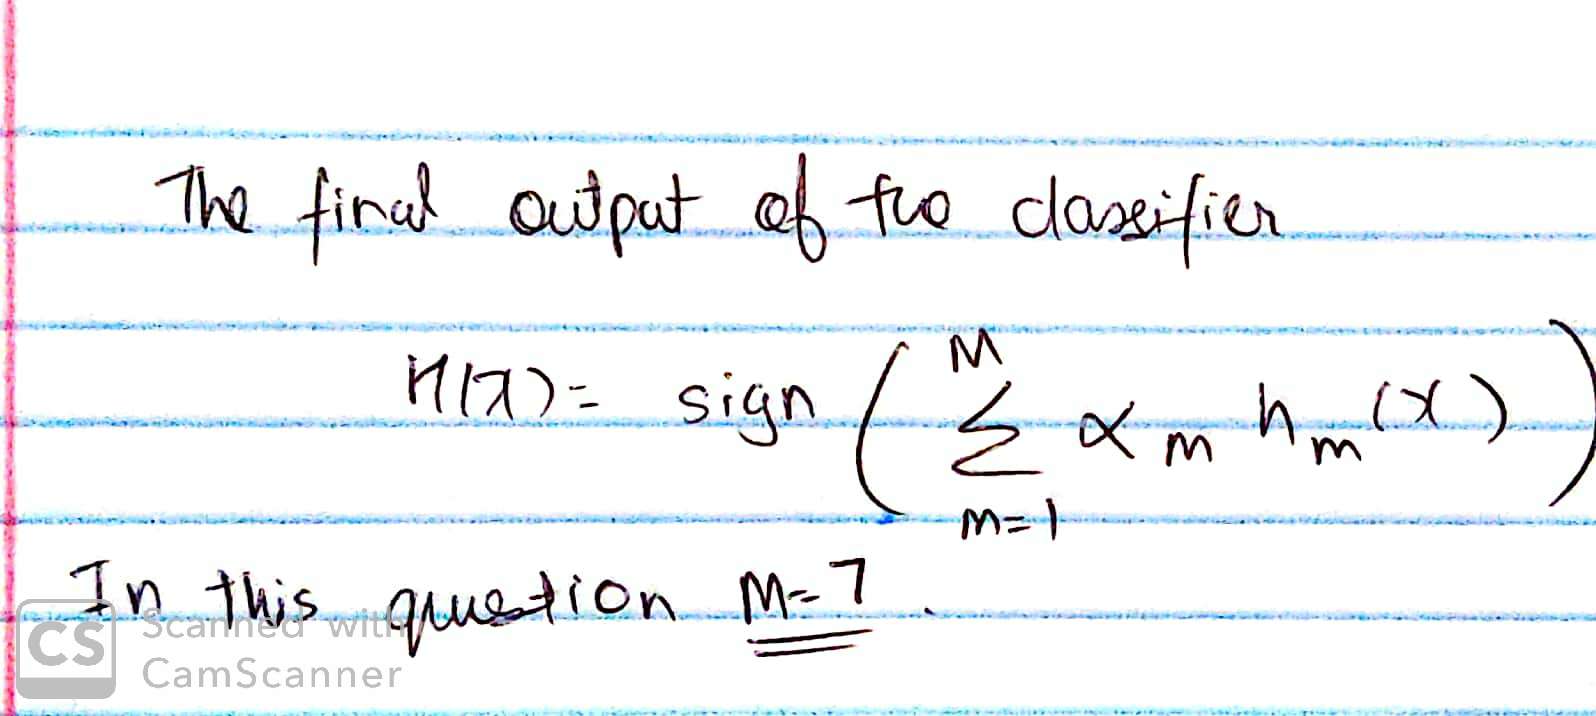 The final output of the classifier
H(x) = sign ( M Σ m=1 α m h m (x) )
In this question M=7.
CS Scanned with
CamScanner